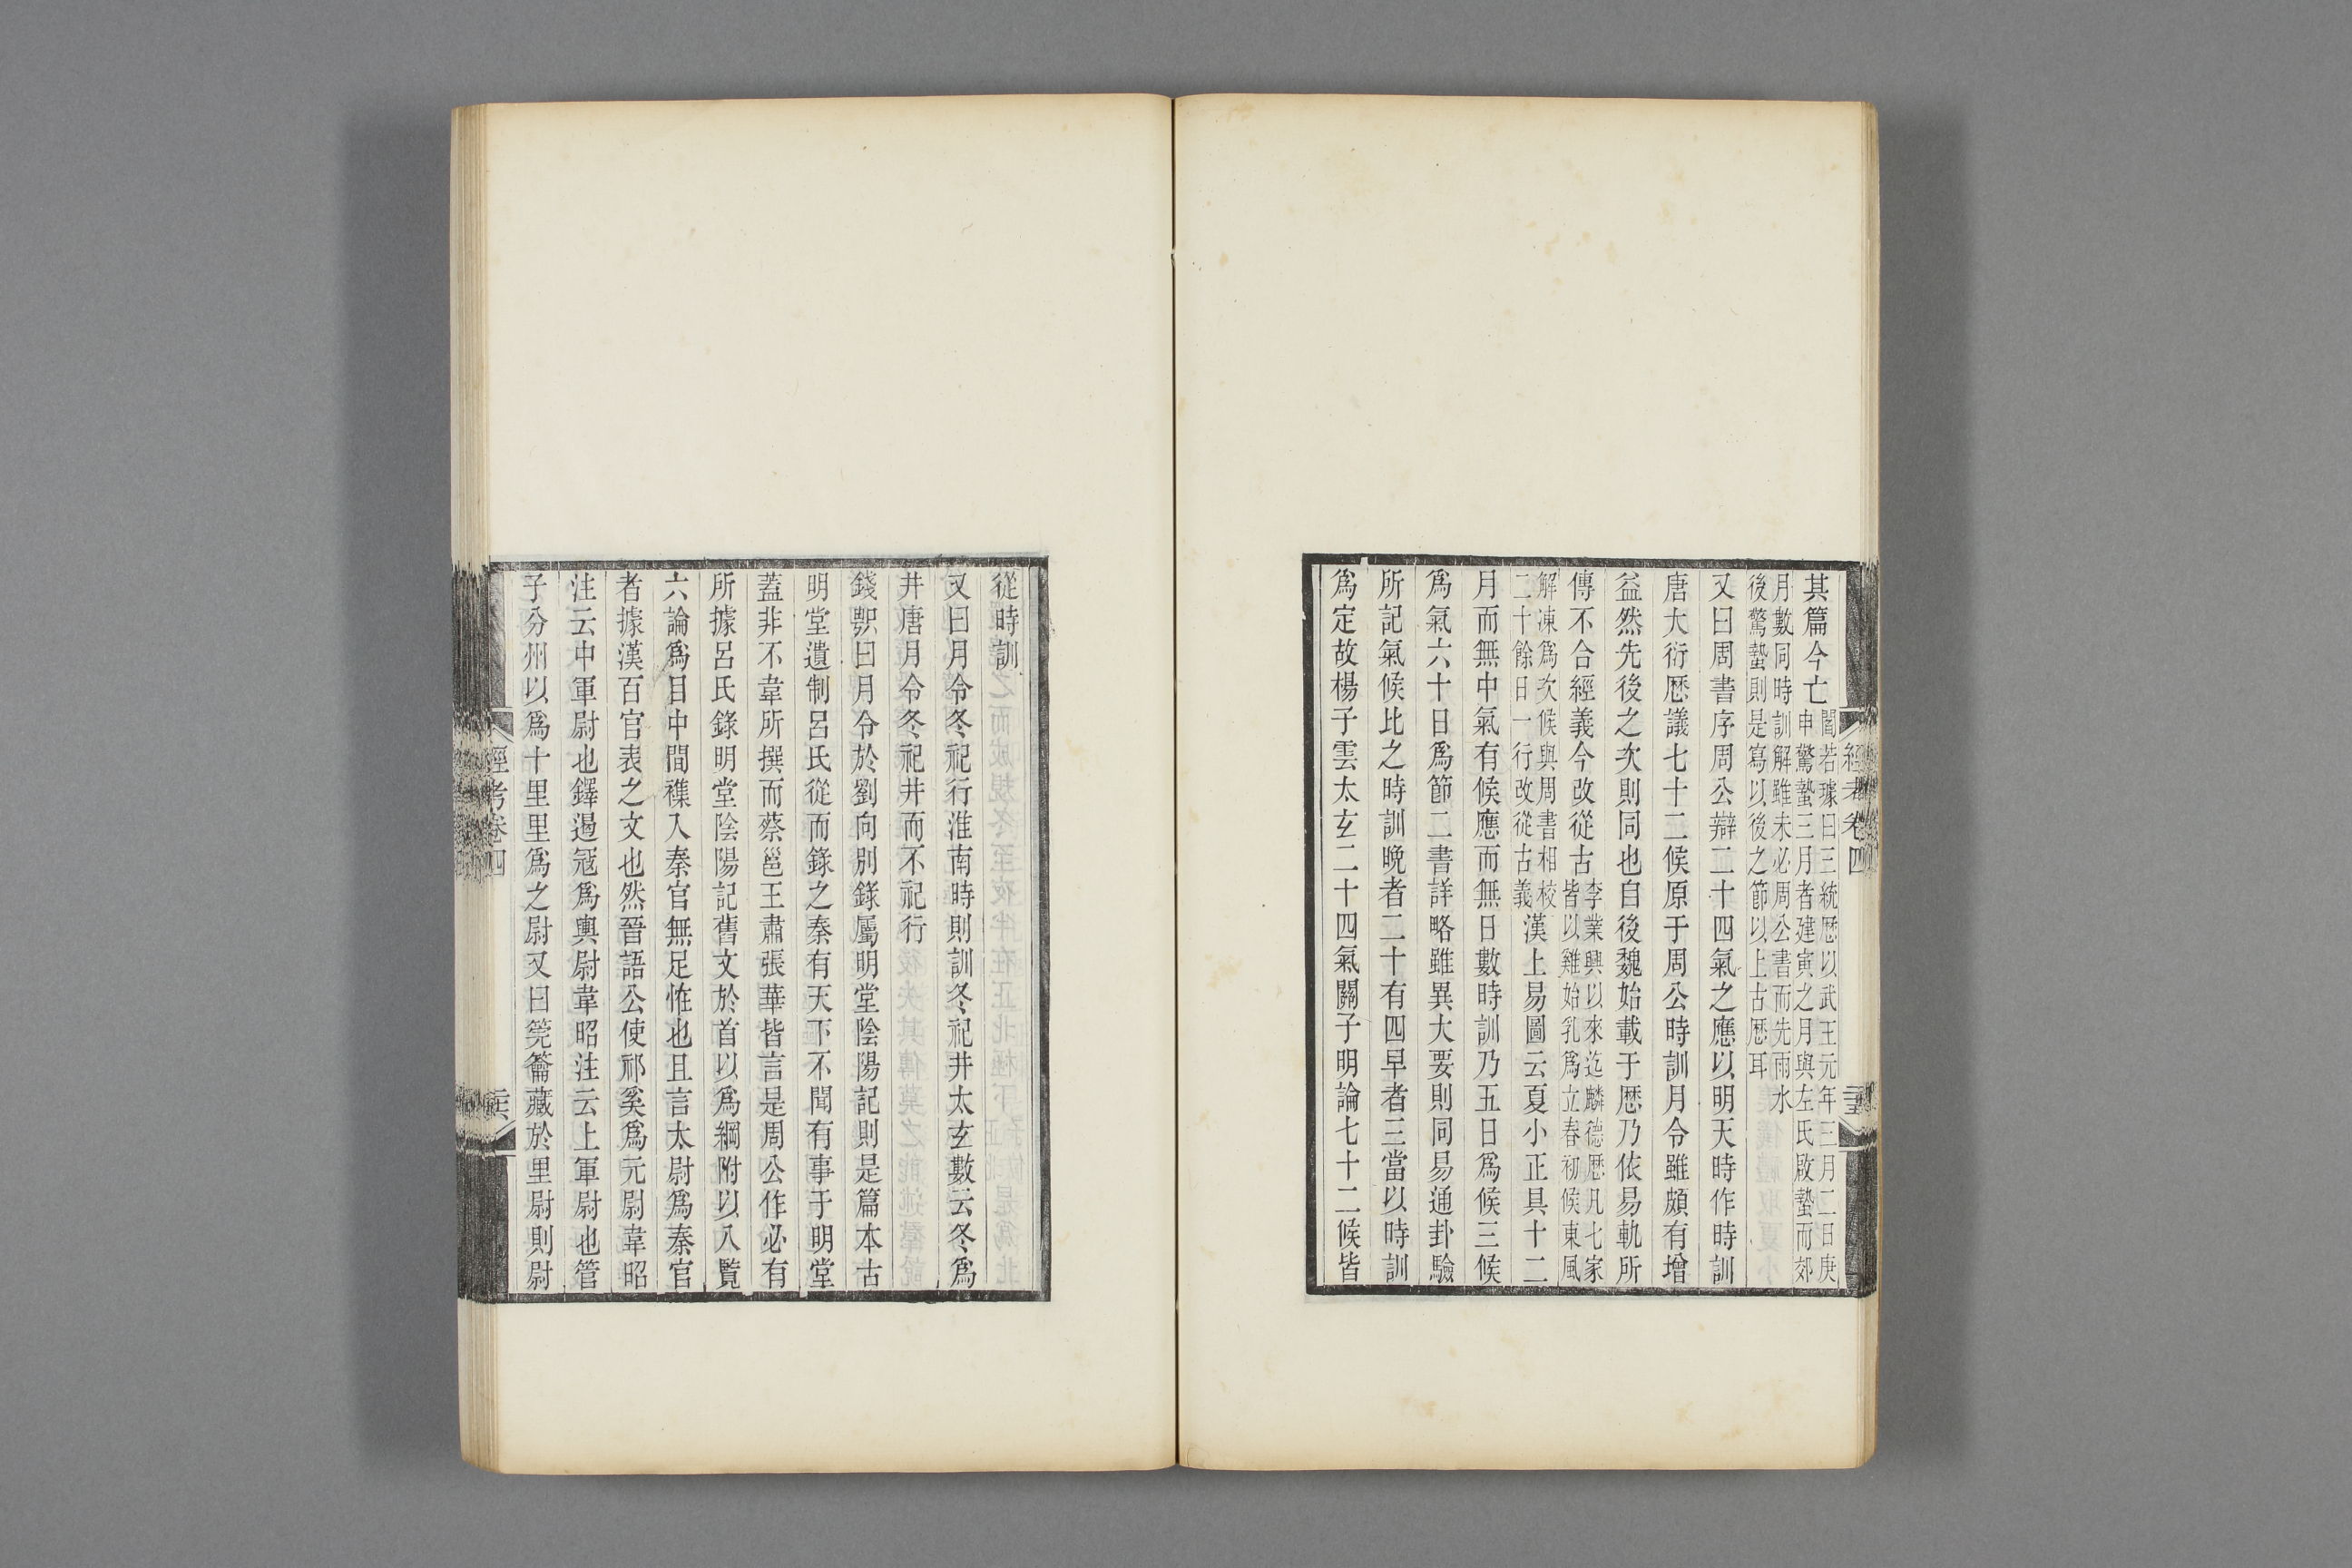 其篇今亡閻若璩曰三統厯以武王元年三月二日庚
申驚蟄三月者建寅之月與左氏啟蟄而郊
月數同時訓解雖未必周公書而先雨水
後驚蟄則是寫以後之節以上古厯耳
又曰周書序周公辯二十四氣之應以明天時作時訓
唐大衍厯議七十二候原于周公時訓月令雖頗有增
益然先後之次則同也自後魏始載于厯乃依易軌所
傳不合經義今改從古李業興以來迄麟德厯凡七家
皆以雞始乳為立春初候東風
解凍為次候與周書相校
二十餘日一行改從古義漢上易圖云夏小正具十二
月而無中氣有候應而無日數時訓乃五日爲候三候
爲氣六十日爲節二書詳略雖異大要則同易通卦驗
所記氣候比之時訓晚者二十有四早者三當以時訓
爲定故楊子雲太玄二十四氣關子明論七十二候皆
經考卷四
從時訓
又曰月令冬祀行淮南時則訓冬祀井太玄數云冬爲
井唐月令冬祀井而不祀行
錢㷼曰月令於劉向別錄屬明堂陰陽記則是篇本古
明堂遺制呂氏從而錄之秦有天下不聞有事于明堂
蓋非不韋所撰而蔡邕王肅張華皆言是周公作必有
所據呂氏錄明堂陰陽記舊文於首以爲綱附以八覽
六論爲目中間襍入秦官無足怪也且言太尉爲秦官
者據漢百官表之文也然晉語公使祁奚爲元尉韋昭
注云中軍尉也鐸遏冦爲輿尉韋昭注云上軍尉也管
子分州以爲十里里爲之尉又曰筦籥藏於里尉則尉
經考卷四